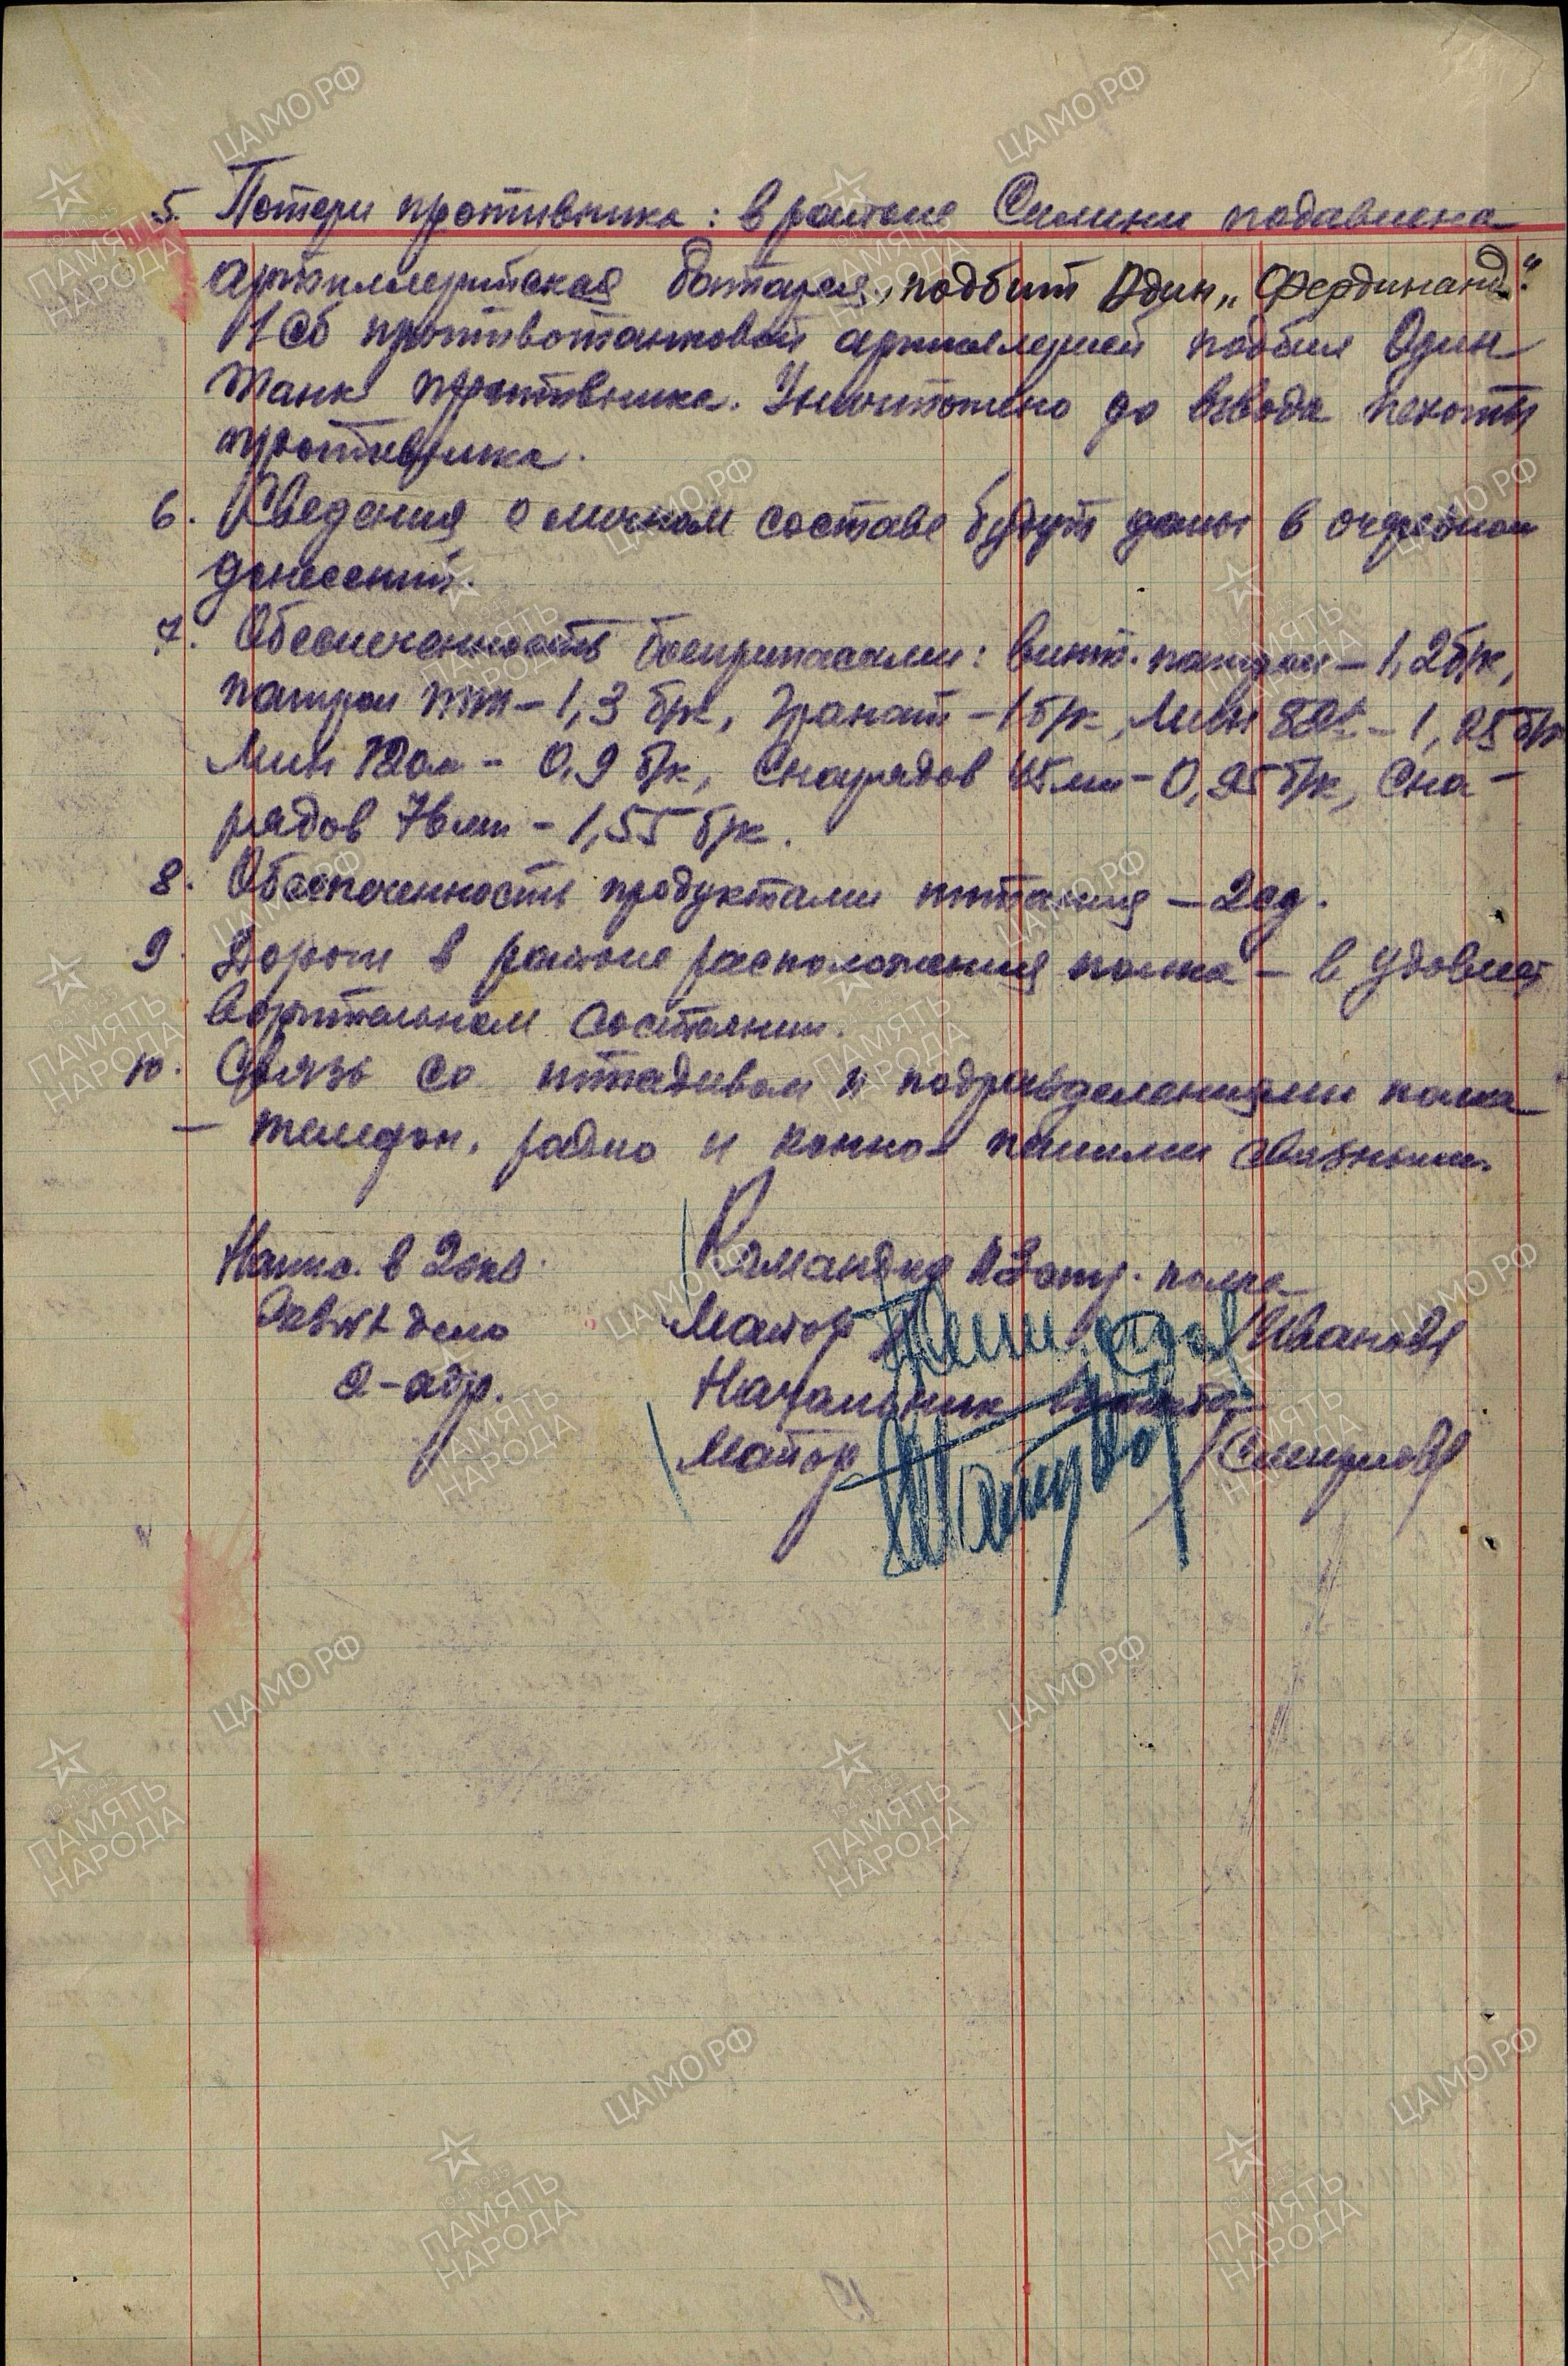 5. Потери противника: в районе Силини подавлена
артиллерийская батарея, подбит один „Фердинанд“.
1 Сб противотанковой артиллерией подбил один
танк противника. Уничтожено до взвода пехоты
противника.
6. Сведения о личном составе будут даны в очередном
донесении.
7. Обеспеченность боеприпасами: винт. патрон – 1,2 б/к,
патрон ТТ – 1,3 б/к, Гранат – 1 б/к, Мин 82 – 1,25 б/к
Мин 120мм – 0,9 б/к, Снарядов 45 мм – 0,95 б/к, Сна-
рядов 76 мм – 1,55 б/к.
8. Обеспеченность продуктами питания – 2 сд.
9. Дороги в районе расположения полка – в удовлет
ворительном состоянии.
10. Связь со штадивом и подразделениями полка
– телефон, радио и конно-пешими связными.
Напис. в 2 экз.
Экз №1 дело
2 – адр.
Командир стр. полка
Майор /Иванов/
Начальник штаба
Майор /Смирнов/
ЦАМО РФ
ПАМЯТЬ НАРОДА